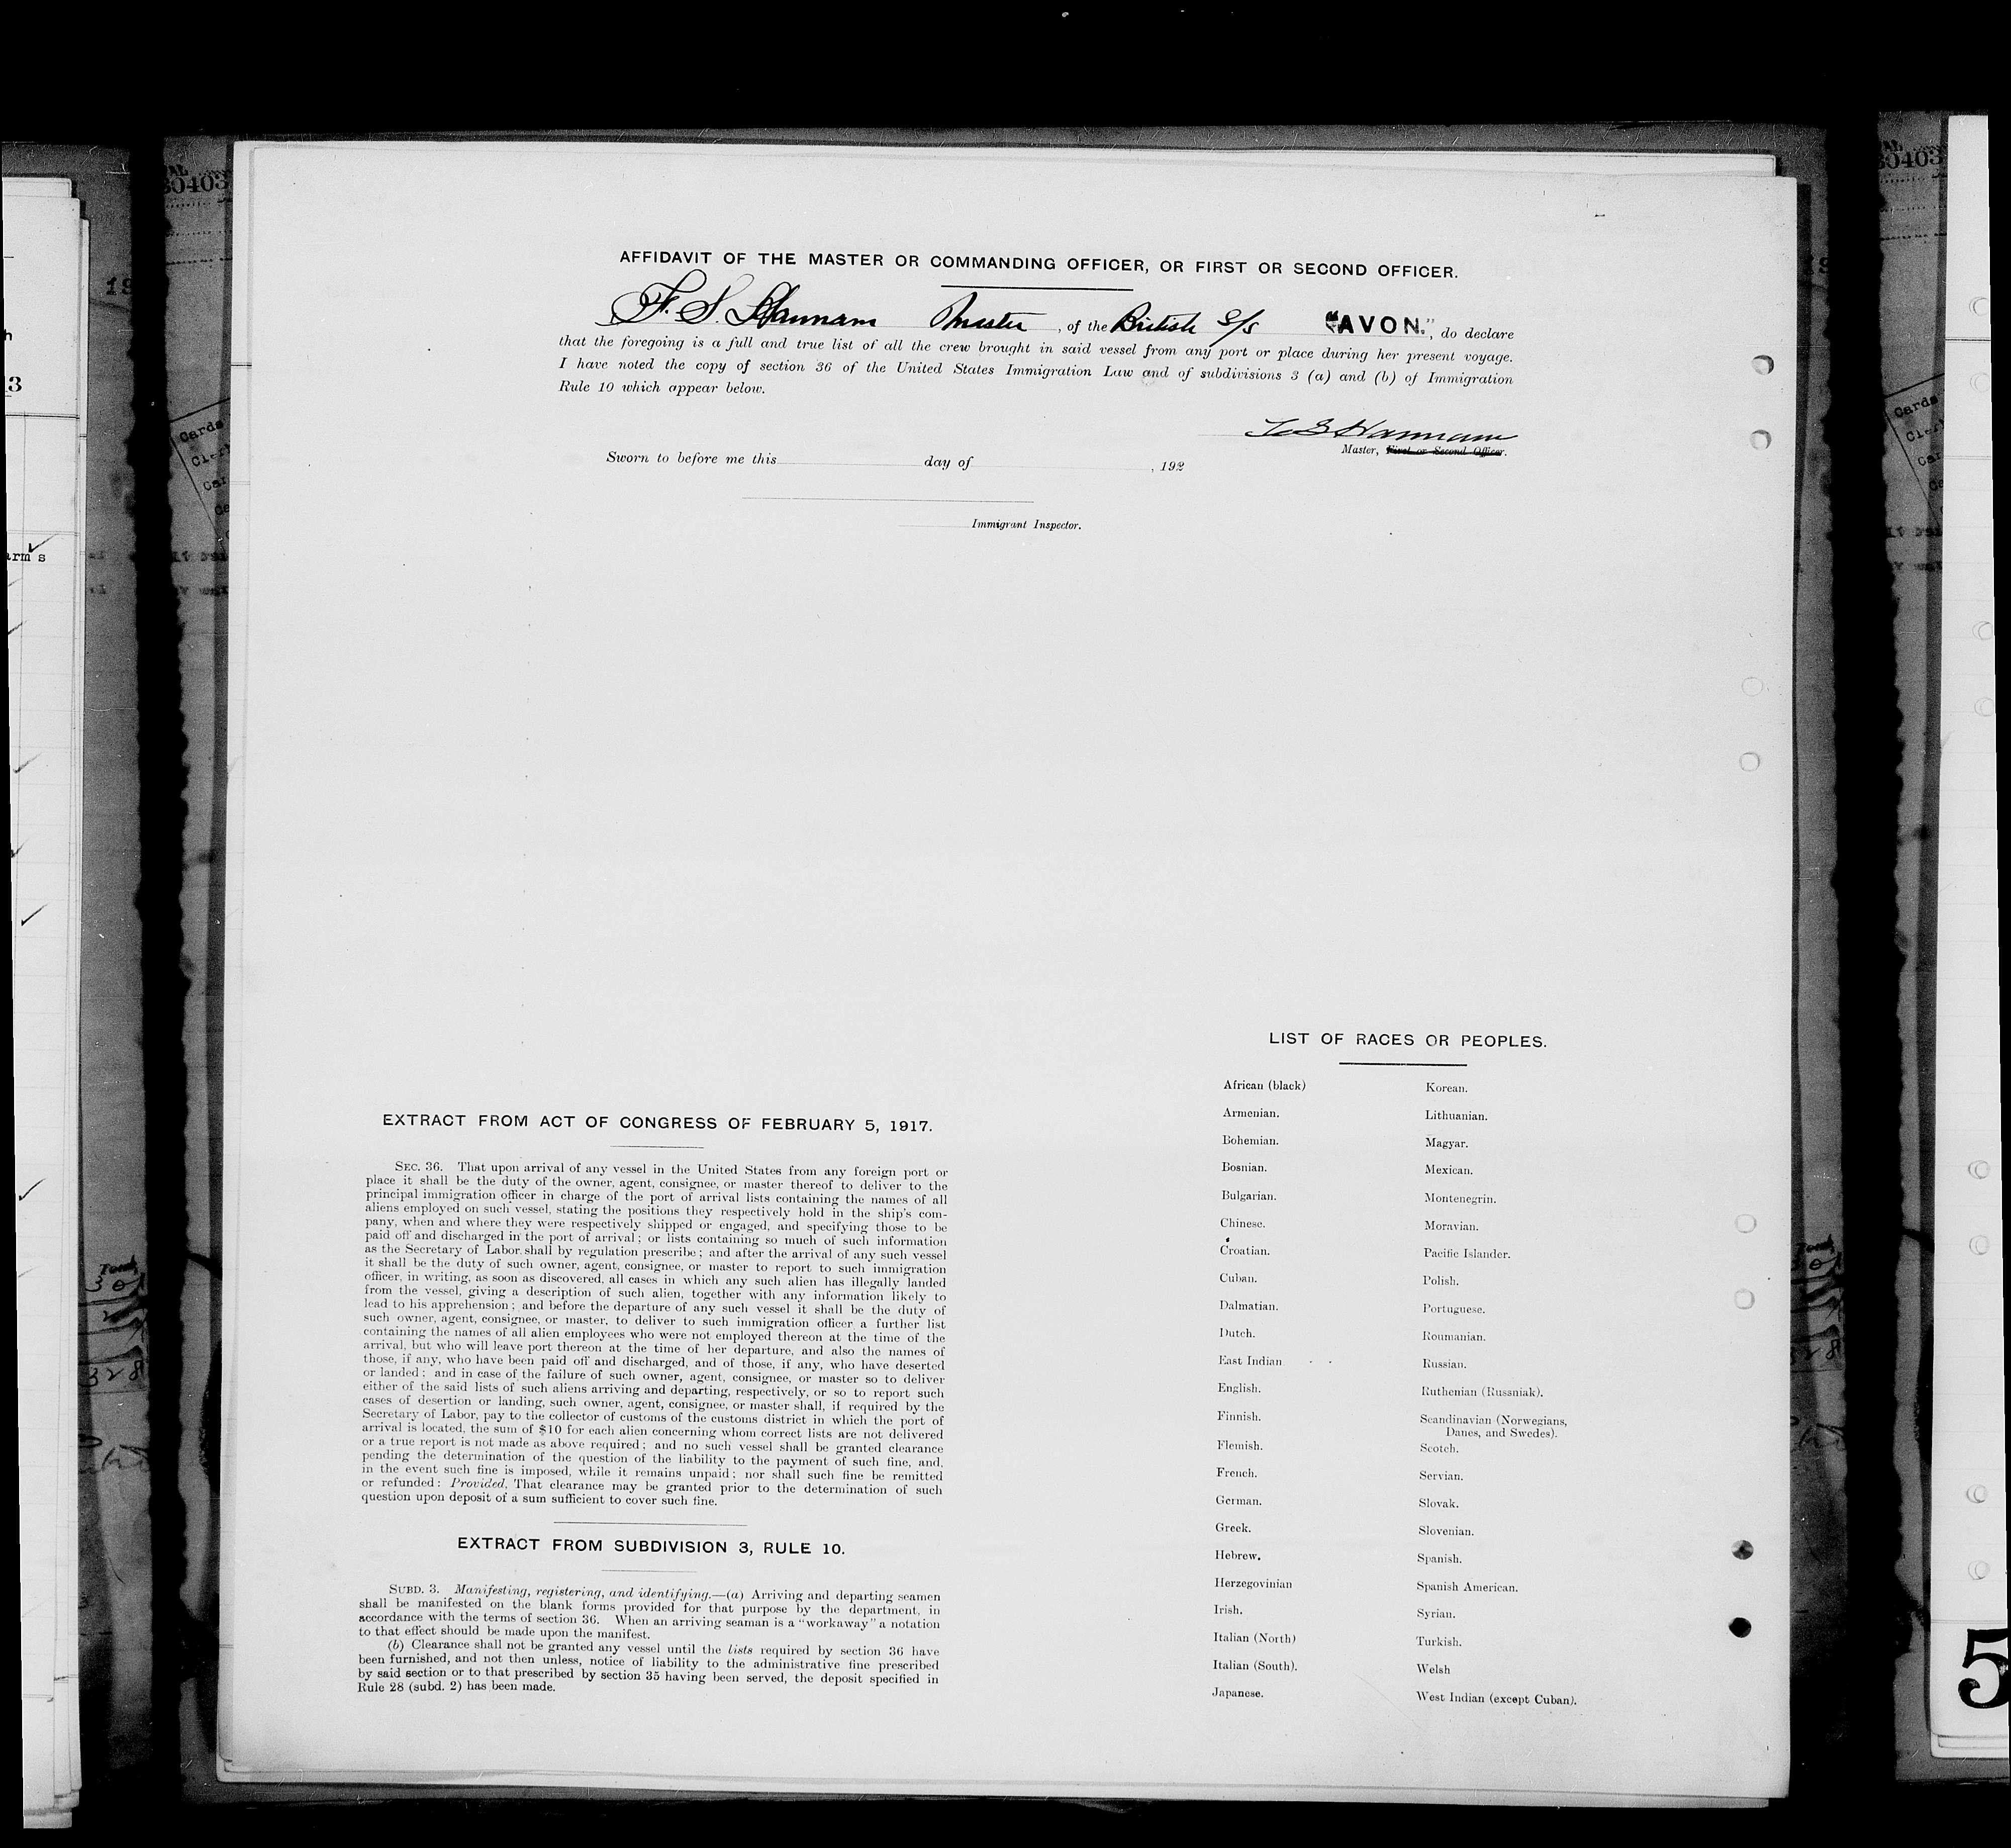 AFFIDAVIT OF THE MASTER OR COMMANDING OFFICER, OR FIRST OR SECOND OFFICER.
F. S. Hannam Master, of the British S/S "AVON.", do declare
that the foregoing is a full and true list of all the crew brought in said vessel from any port or place during her present voyage.
I have noted the copy of section 36 of the United States Immigration Law and of subdivisions 3 (a) and (b) of Immigration
Rule 10 which appear below.
F S Hannam
Master, First or Second Officer.
Sworn to before me this day of , 192
Immigrant Inspector.
EXTRACT FROM ACT OF CONGRESS OF FEBRUARY 5, 1917.
SEC. 36. That upon arrival of any vessel in the United States from any foreign port or
place it shall be the duty of the owner, agent, consignee, or master thereof to deliver to the
principal immigration officer in charge of the port of arrival lists containing the names of all
aliens employed on such vessel, stating the positions they respectively hold in the ship's com-
pany, when and where they were respectively shipped or engaged, and specifying those to be
paid off and discharged in the port of arrival; or lists containing so much of such information
as the Secretary of Labor shall by regulation prescribe; and after the arrival of any such vessel
it shall be the duty of such owner, agent, consignee, or master to report to such immigration
officer, in writing, as soon as discovered, all cases in which any such alien has illegally landed
from the vessel, giving a description of such alien, together with any information likely to
lead to his apprehension; and before the departure of any such vessel it shall be the duty of
such owner, agent, consignee, or master, to deliver to such immigration officer a further list
containing the names of all alien employees who were not employed thereon at the time of the
arrival, but who will leave port thereon at the time of her departure, and also the names of
those, if any, who have been paid off and discharged, and of those, if any, who have deserted
or landed; and in case of the failure of such owner, agent, consignee, or master so to deliver
either of the said lists of such aliens arriving and departing, respectively, or so to report such
cases of desertion or landing, such owner, agent, consignee, or master shall, if required by the
Secretary of Labor, pay to the collector of customs of the customs district in which the port of
arrival is located, the sum of $10 for each alien concerning whom correct lists are not delivered
or a true report is not made as above required; and no such vessel shall be granted clearance
pending the determination of the question of the liability to the payment of such fine, and,
in the event such fine is imposed, while it remains unpaid; nor shall such fine be remitted
or refunded: Provided, That clearance may be granted prior to the determination of such
question upon deposit of a sum sufficient to cover such fine.
EXTRACT FROM SUBDIVISION 3, RULE 10.
SUBD. 3. Manifesting, registering, and identifying.—(a) Arriving and departing seamen
shall be manifested on the blank forms provided for that purpose by the department, in
accordance with the terms of section 36. When an arriving seaman is a "workaway" a notation
to that effect should be made upon the manifest.
(b) Clearance shall not be granted any vessel until the lists required by section 36 have
been furnished, and not then unless, notice of liability to the administrative fine prescribed
by said section or to that prescribed by section 35 having been served, the deposit specified in
Rule 28 (subd. 2) has been made.
LIST OF RACES OR PEOPLES.
African (black) Korean.
Armenian. Lithuanian.
Bohemian. Magyar.
Bosnian. Mexican.
Bulgarian. Montenegrin.
Chinese. Moravian.
Croatian. Pacific Islander.
Cuban. Polish.
Dalmatian. Portuguese.
Dutch. Roumanian.
East Indian Russian.
English. Ruthenian (Russniak).
Finnish. Scandinavian (Norwegians,
Danes, and Swedes).
Flemish. Scotch.
French. Servian.
German. Slovak.
Greek. Slovenian.
Hebrew. Spanish.
Herzegovinian Spanish American.
Irish. Syrian.
Italian (North) Turkish.
Italian (South). Welsh
Japanese. West Indian (except Cuban).
5